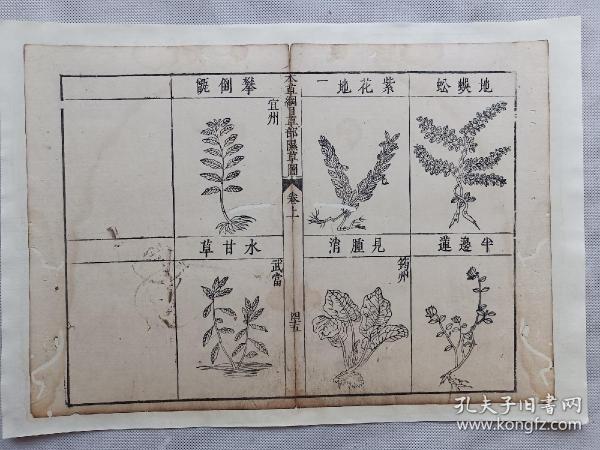 地蜈蚣
紫花地丁
攀倒甑
宜州
半邊蓮
見腫消
筠州
水甘草
武當
本草綱目草部隰草圖
卷上
四十五
孔夫子旧书网
www.kongfz.com